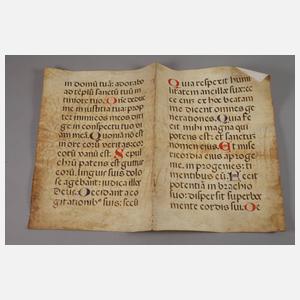 in domū tuā: adorabo
ad tēplū sanctū tuū in
timore tuo. Dñe deduc
me in iustitia tua: prop
ter inimicos meos diri
ge in conspectu tuo vi
am meā. Quoniā nō est
in ore eorū veritas: cor
eorū vanū est. Sepul
chrū patens est guttur
eorū, linguis suis dolo
se agebant: iudica illos
Deus. Decidant a co
gitationibꝰ suis: secū
Quia respexit humi
litatem ancillæ suæ: ec
ce enim ex hoc beatam
me dicent omnes ge
nerationes. Quia fe
cit mihi magna qui
potens est: et sanctus
nomen eius. Et mise
ricordia eius a progenie
in progenies: ti
mentibus eū. Fecit
potentiā in brachio
suo: dispersit superbos
mente cordis sui. De